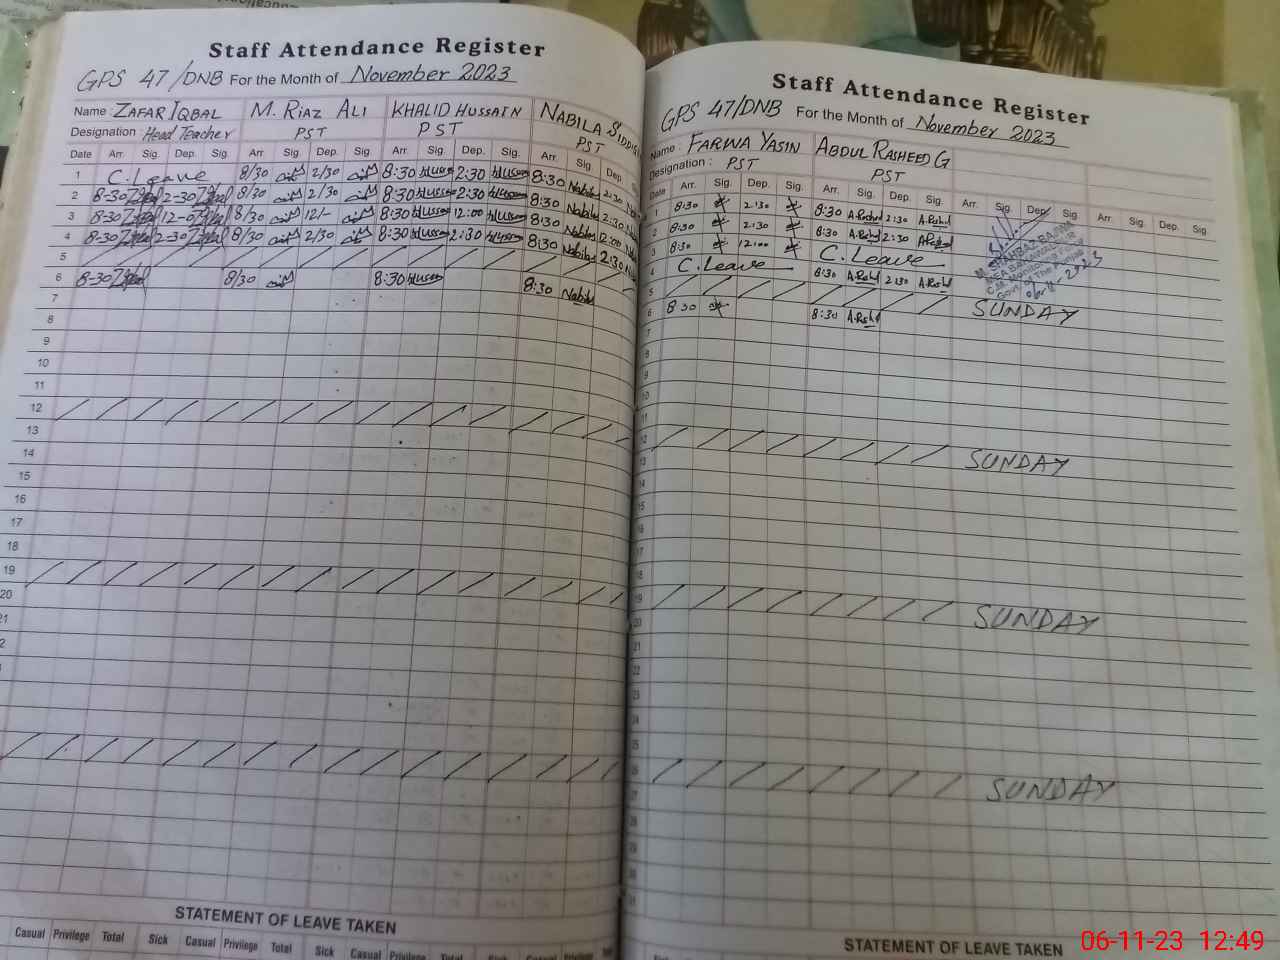 Staff Attendance Register
GPS 47/DNB For the Month of November 2023
Name : ZAFAR IQBAL M. RIAZ ALI KHALID HUSSAIN NABILA
Designation : Head Teacher PST PST PST
Date Arr. Sig. Dep. Sig. Arr. Sig. Dep. Sig. Arr. Sig. Dep. Sig. Arr. Sig. Dep.
1 C. Leave 8/30 2/30 8:30 2:30 8:30 Nabila 2:30
2 8-30 2-30 8/30 2/30 8:30 2:30 8:30 Nabila 2:30
3 8-30 12-0 8/30 12/- 8:30 12:00 8:30 Nabila 12:00
4 8-30 2-30 8/30 2/30 8:30 2:30 8:30 Nabila 2:30
5
6 8-30 8/30 8:30 8:30 Nabila
7
8
9
10
11
12
13
14
15
16
17
18
19
20
21
STATEMENT OF LEAVE TAKEN
Casual Privilege Total Sick Casual Privilege Total Sick Casual Privilege Total Sick Casual Privilege
Staff Attendance Register
GPS 47/DNB For the Month of November 2023
Name : FARWA YASIN ABDUL RASHEED G
Designation : PST PST
Date Arr. Sig. Dep. Sig. Arr. Sig. Dep. Sig. Arr. Sig. Dep. Sig. Arr. Sig. Dep. Sig.
1 8:30 2:30 8:30 A.Rashd 2:30 A.Rashd
2 8:30 2:30 8:30 A.Rashd 2:30 A.Rashd
3 8:30 12:00 C. Leave
4 C. Leave 8:30 A.Rashd 2:30 A.Rashd
5 SUNDAY
6 8:30 8:30 A.Rashd
7
8
9
10
11
12 SUNDAY
13
14
15
16
17
18
19 SUNDAY
20
21
22
23
24
25
26 SUNDAY
27
28
29
30
31
STATEMENT OF LEAVE TAKEN
06-11-23 12:49